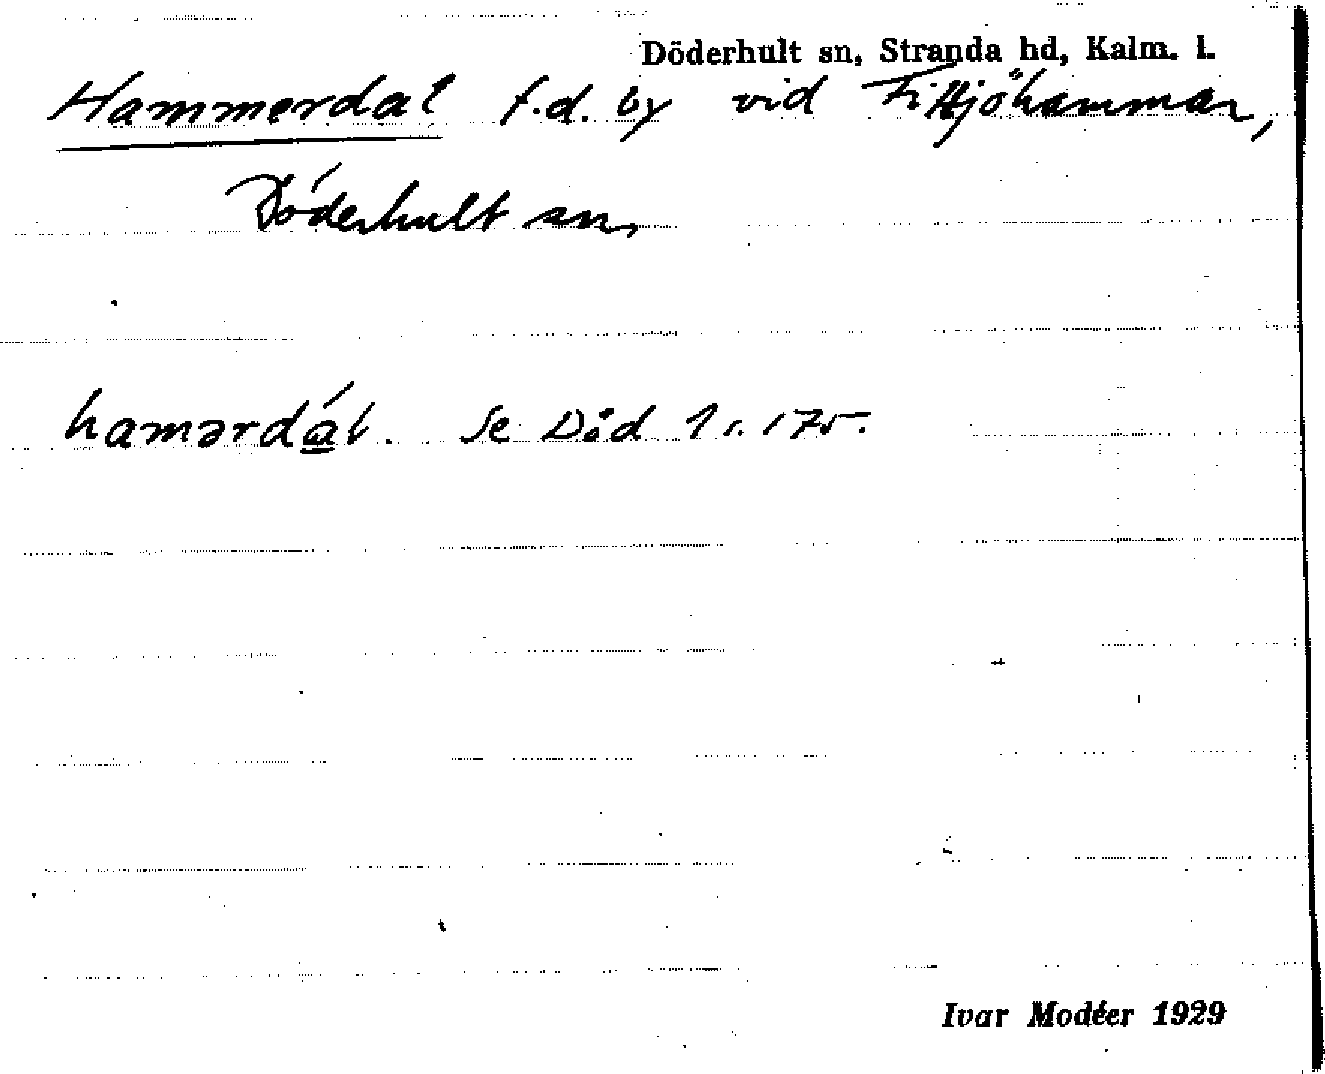 Döderhult sn, Stranda hd, Kalm. l.
Hammerdal f.d. by vid Fittjöhammar,
Döderhult sn,
hamərdál. Se Död 1 s. 175.
Ivar Modéer 1929